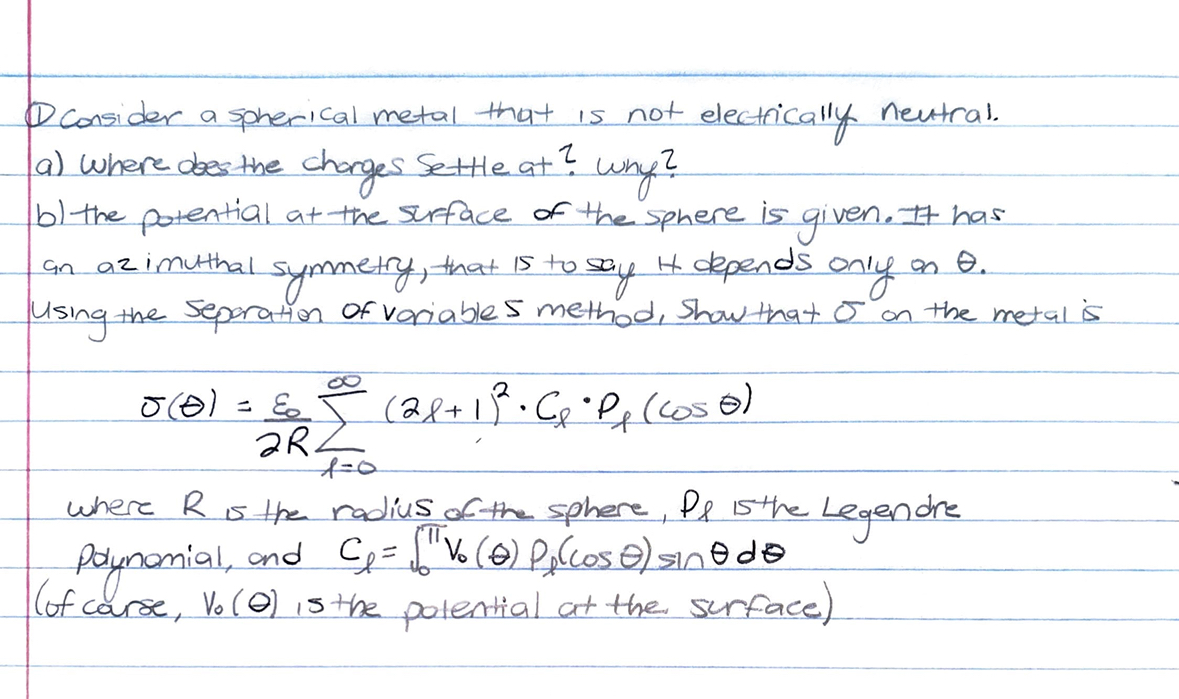 ① Consider a spherical metal that is not electrically neutral.
a) Where does the charges settle at? Why?
b) the potential at the surface of the sphere is given. It has
an azimuthal symmetry, that is to say it depends only on θ.
Using the separation of variables method, show that σ on the metal is
σ(θ) = ε₀/2R ∑_{ℓ=0}^{∞} (2ℓ+1)² · C_ℓ · P_ℓ (cos θ)
where R is the radius of the sphere, P_ℓ is the Legendre
Polynomial, and C_ℓ = ∫₀^π V₀(θ) P_ℓ(cos θ) sin θ dθ
(of carse, V₀(θ) is the potential at the surface)